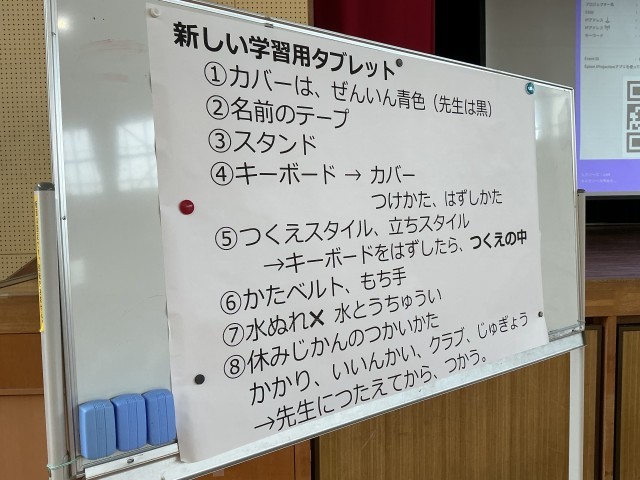 新しい学習用タブレット
①カバーは、ぜんいん青色（先生は黒）
②名前のテープ
③スタンド
④キーボード → カバー
つけかた、はずしかた
⑤つくえスタイル、立ちスタイル
→キーボードをはずしたら、つくえの中
⑥かたベルト、もち手
⑦水ぬれ✕ 水とうちゅうい
⑧休みじかんのつかいかた
かかり、いいんかい、クラブ、じゅぎょう
→先生につたえてから、つかう。